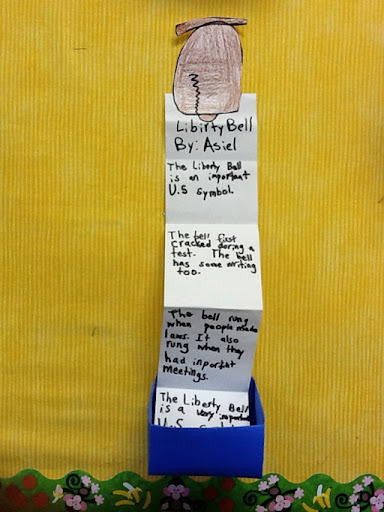 Libirty Bell
By: Asiel
The Liberty Bell
is an important
U.S symbol.
The bell first
cracked during a
test. The bell
has some writing
too.
The bell rung
when people made
laws. It also
rung when they
had inportant
meetings.
The Liberty Bell
is a very important
U.S